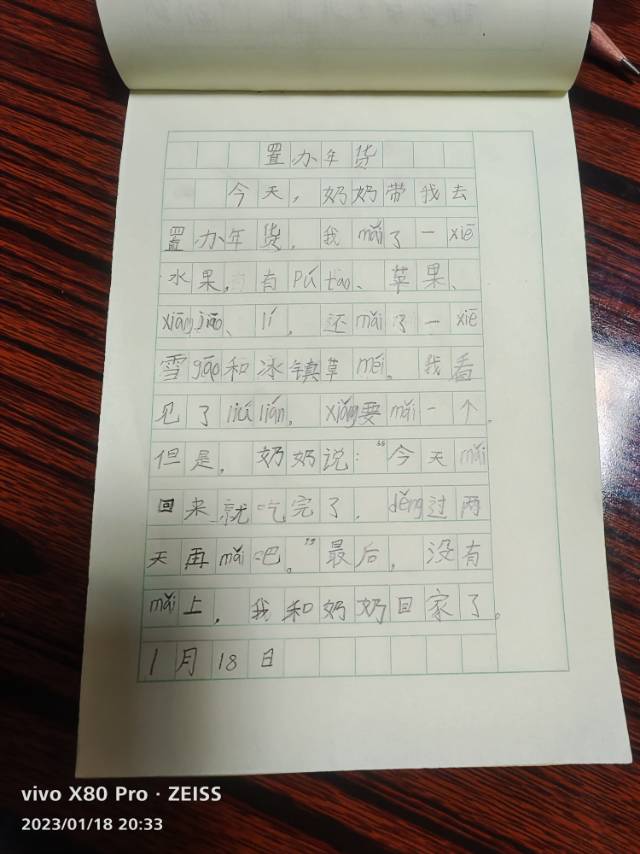 置办年货
今天,奶奶带我去
置办年货。我mǎi了一xiē
水果,有pú tao、苹果、
xiāng jiāo、lí,还mǎi了一xiē
雪gāo和冰镇草méi。我看
见了liú lián,xiǎng要mǎi一个。
但是,奶奶说:“今天mǎi
回来就吃完了,děng过两
天再mǎi吧。”最后,没有
mǎi上,我和奶奶回家了。
1月18日
vivo X80 Pro · ZEISS
2023/01/18 20:33